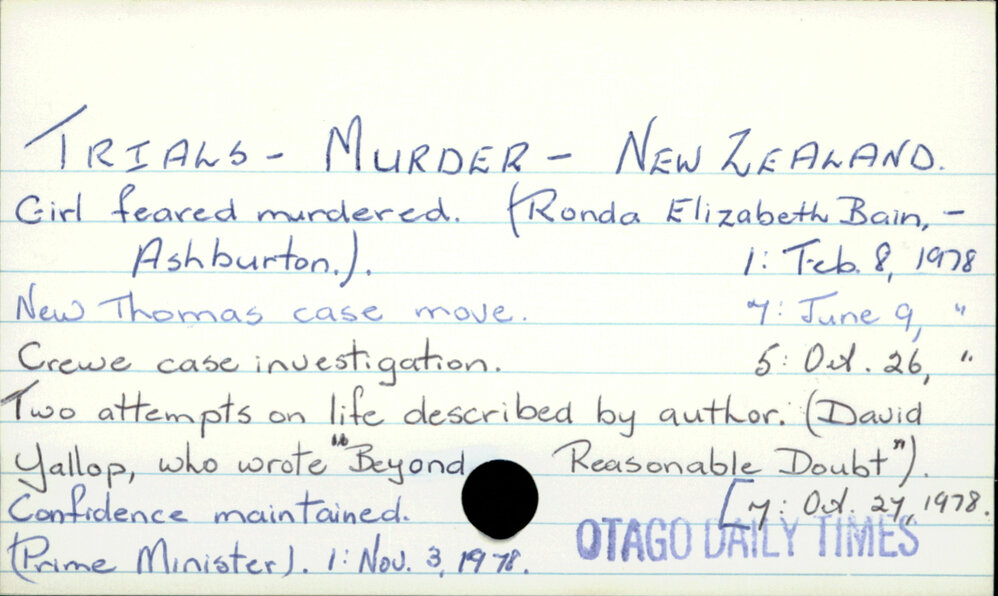 TRIALS - MURDER - NEW ZEALAND.
Girl feared murdered. (Ronda Elizabeth Bain, -
Ashburton.). 1: Feb. 8, 1978
New Thomas case move. 7: June 9, "
Crewe case investigation. 5: Oct. 26, "
Two attempts on life described by author. (David
Yallop, who wrote "Beyond Reasonable Doubt").
[7: Oct. 27, 1978.
Confidence maintained.
(Prime Minister). 1: Nov. 3, 1978.
OTAGO DAILY TIMES